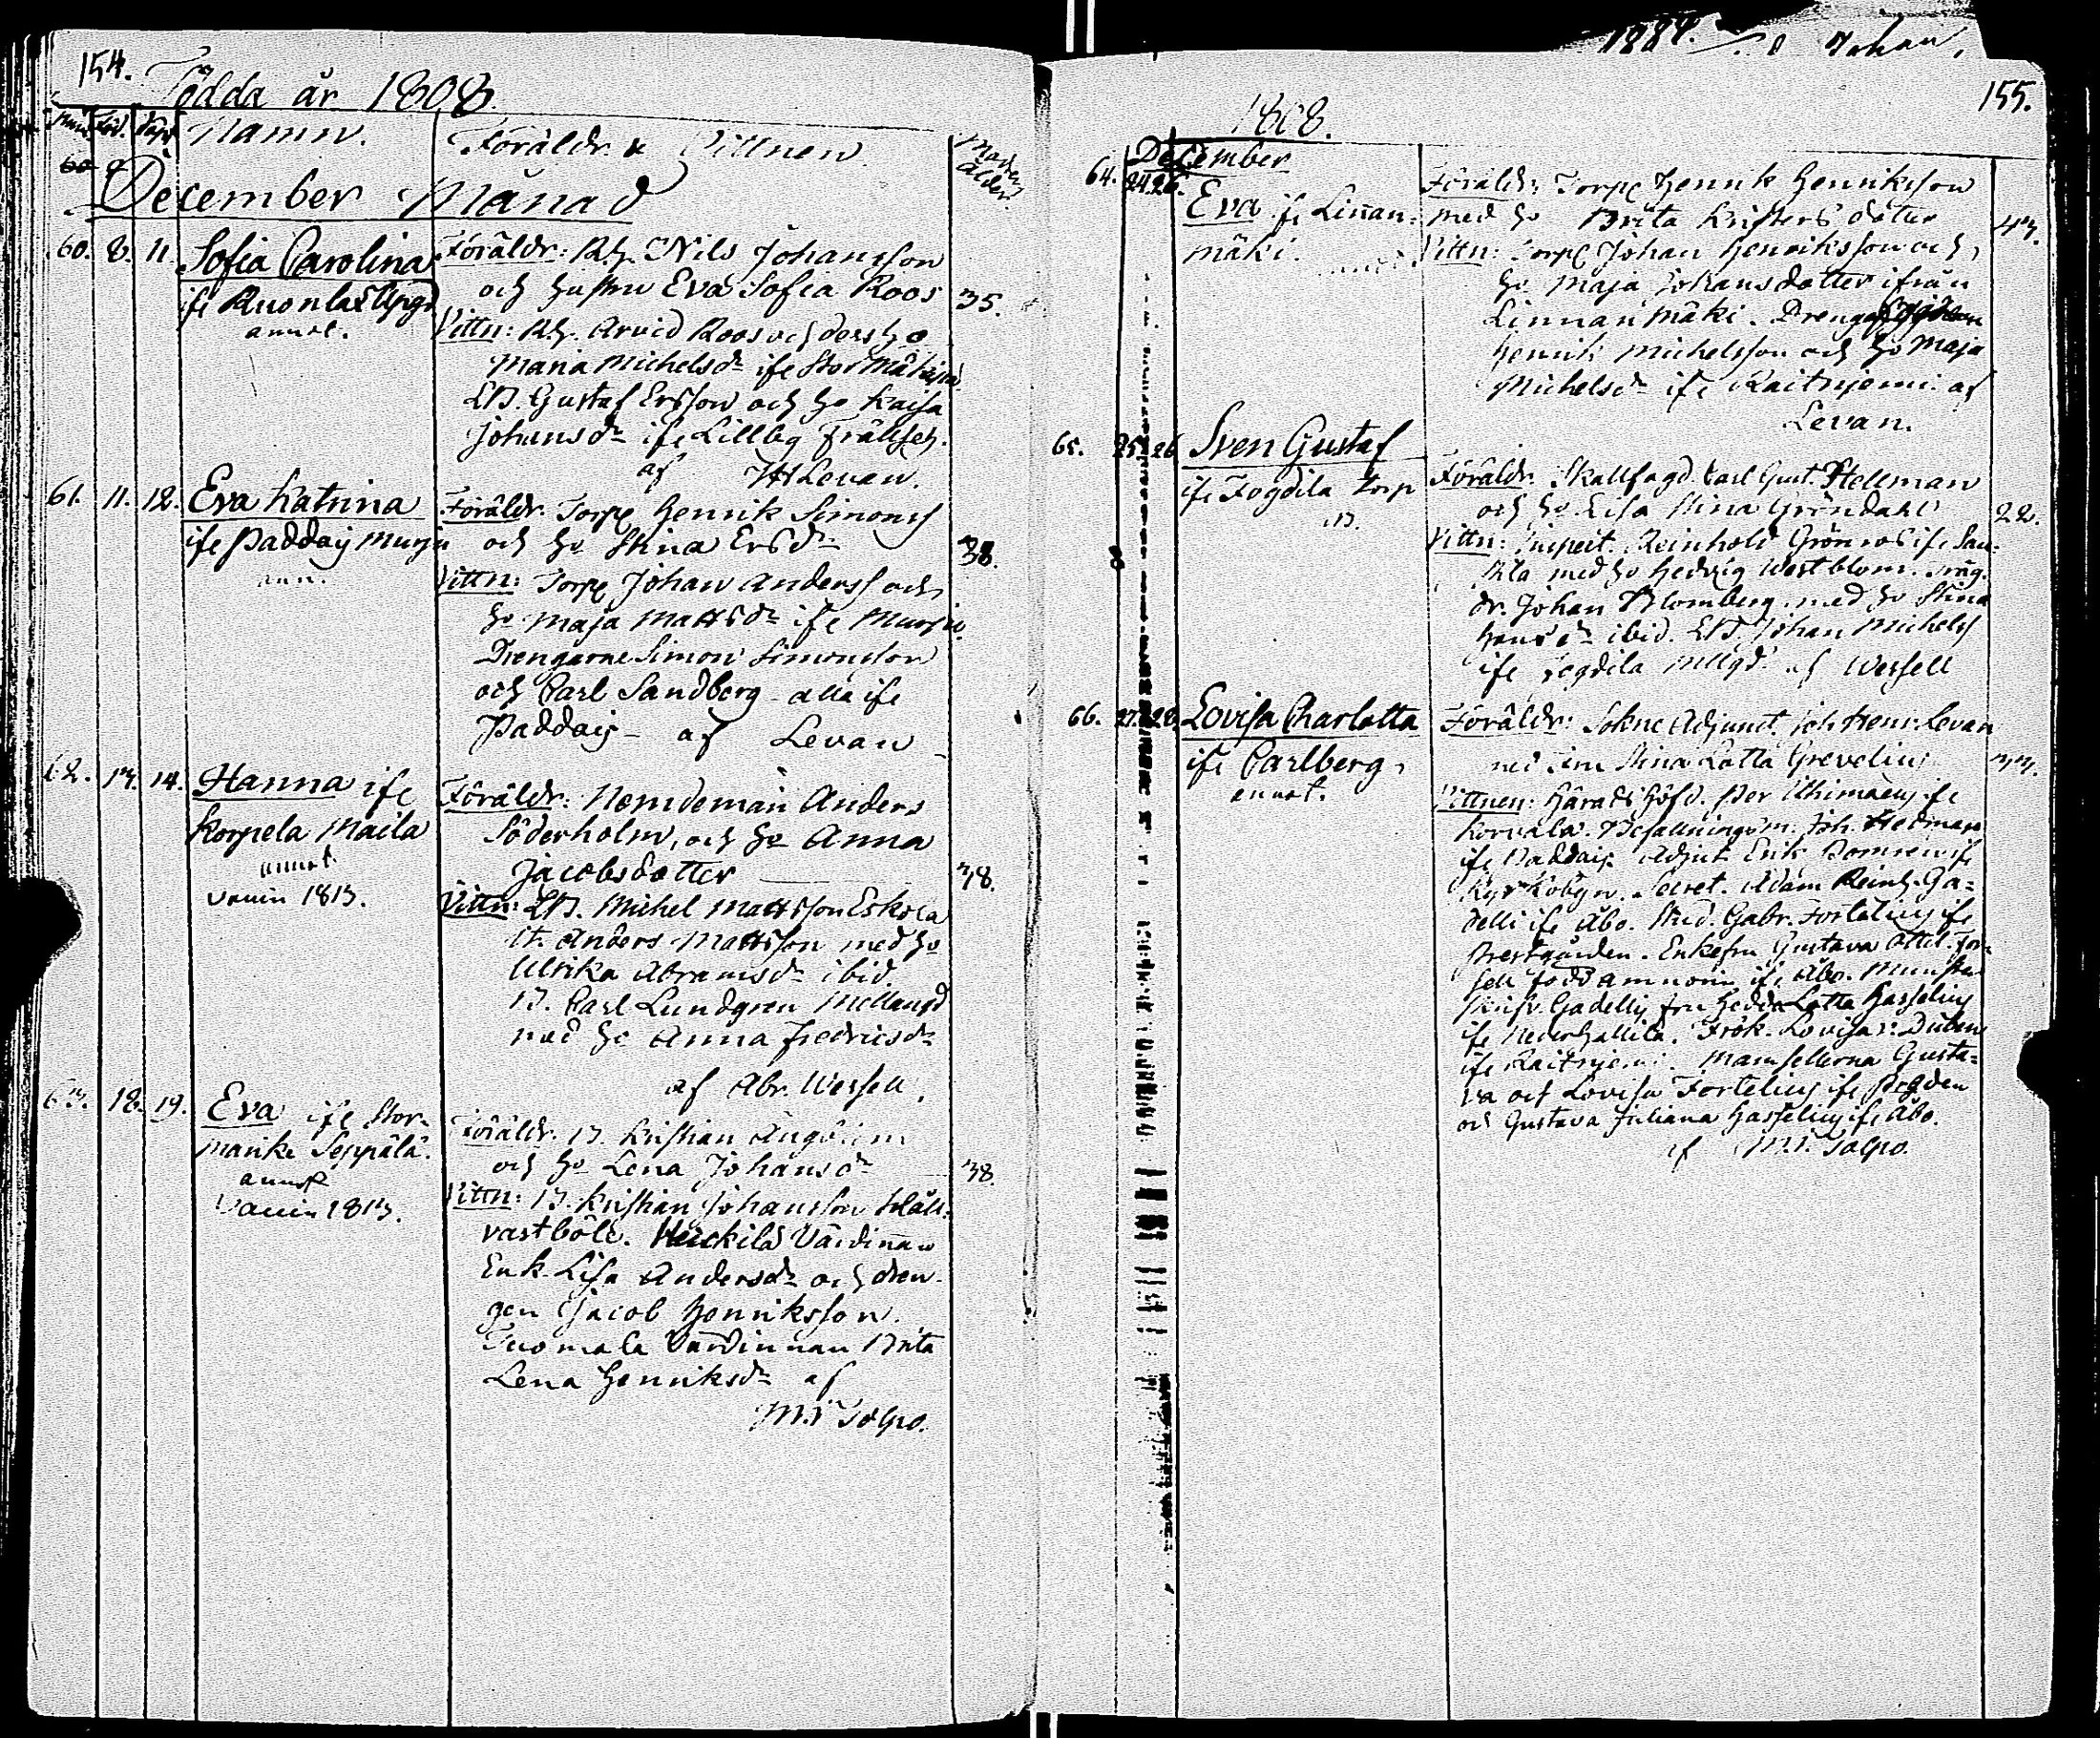 154.
Födda år 1808.
Num. Föd. Döpt. Namn. Föräldr. & Vittnen. Modrens Ålder.
December Månad
60. 8. 11. Sofia Carolina
ife Ruonla Upgd
annot.
Föräldr: Rh. Nils Johansson
och hustru Eva Sofia Roos 35.
Vittn: Rh. Arvid Roos och dess ho
Maria Michelsdr ife Stor
LB. Gustaf Ersson och ho Kaisa
Johansdr ife Lilleg Frälseh.
af Levan.
61. 11. 12. Eva Katrina
ife Paddais Murju
ann.
Föräldr. Torp Henrik Simonss
och ho Stina Ersdr 38.
Vittn: Torp Johan Anderss och
ho Maja Mattsdr ife Murju.
Drengarne Simon Simonsson
och Carl Sandberg alla ife
Paddais – af Levan
62. 13. 14. Hanna ife
Korpela Maila
annot.
1813.
Föräldr: Nemdeman Anders
Söderholm, och ho Anna
Jacobsdotter 38.
Vittn: LB. Michel Mattsson Eskola
it. Anders Mattsson med ho
Ulrika Abramsdr ibid.
B. Carl Lundgren Mellangd
med ho Anna Fredricsdr
af Abr. Wessell.
63. 18. 19. Eva ife Stor-
Seppälä.
annot
1813.
Föräldr. B. Kristian
och ho Lena Johansdr 38.
Vittn: B. Kristian Johansson
vastböle. Heickilä Värdinnan
Enk. Lisa Andersdr och dren-
gen Jacob Henriksson.
Tuomala Värdinnan Brita
Lena Henriksdr af
M. Tolpo.
1884. Johan,
155.
1808.
December
64. 24. 26. Eva ife Linnan-
mäki.
Föräldr: Torp Henrik Henriksson
med ho Brita Kristersdotter 43.
Vittn: Torp Johan Henriksson och
ho Maja Johansdotter ifrån
Linnanmäki. Dreng
Henrik Michelsson och ho Maja
Michelsdr ife Raitniemi. af
Levan.
65. 25. 26. Sven Gustaf
ife Fogdila torp
Föräldr. Skallfogd. Carl Gust. Hellman
och ho Lisa Stina Gröndahl 22.
Vittn: Inspect. Reinhold Grönroos ife Sau-
med ho Hedvig Westblom.
dr. Johan Blomberg med ho Stina
Hansdr ibid. LB. Johan Michelss
ife Fogdila Mellgd af Wessell
66. 27. 28. Lovisa Charlotta
ife Carlberg.
annot.
Föräldr: Sokne Adjunct. Joh. Henr. Levan
med Stina Lotta Grevelius 33.
Vittnen: Häradshöfd. Per ife
Korvala. Befallningsm. Joh. Hedman
ife Paddais. Adjnt Erik ife
Kyrkobyn. Secret. Adam Reinh. Ga-
delli ife Åbo. Stud. Gabr. Fortelius ife
Prestgården. Enkefru Gustava Ottil. For-
sell född ife Åbo.
Gadelli, fru Hedda Lotta Hasselius
ife Nederhallila. Frök. Lovisa v. Düben
ife Raitniemi. Mamsellerna Gusta-
va och Lovisa Fortelius ife Prgden
och Gustava Juliana Hasselius ife Åbo.
af M. Tolpo.